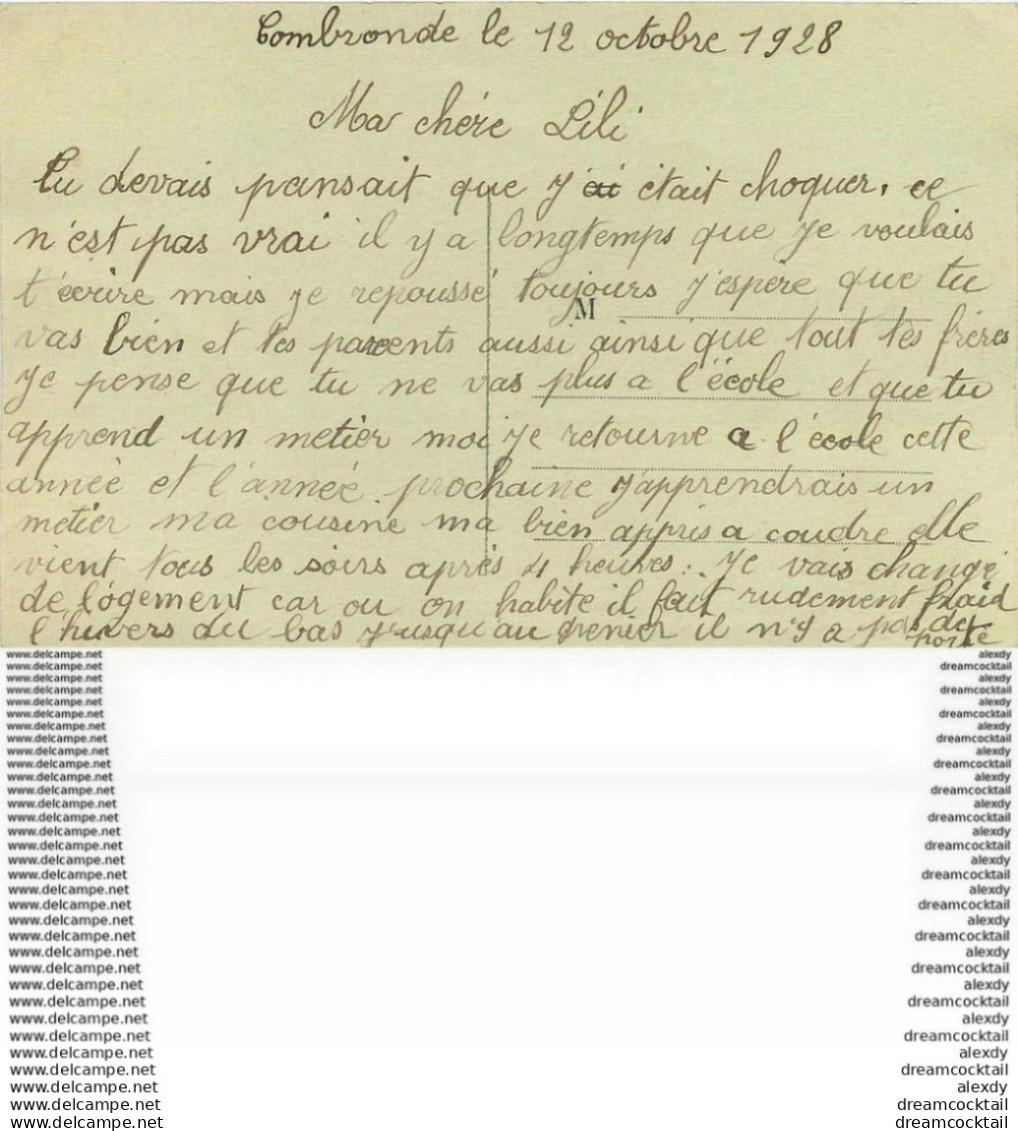 Combronde le 12 octobre 1928
Ma chére Lili
Tu devais pansait que j'ai était choquer. ce
n'est pas vrai il y a longtemps que je voulais
t'écrire mais je repoussé toujours j'espére que tu
M
vas bien et tes parents aussi ainsi que tout tes fréres
je pense que tu ne vas plus a l'école et que tu
apprend un metier moi je retourne a l'école cette
année et l'année prochaine j'apprendrais un
metier ma cousine ma bien appris a coudre elle
vient tous les soirs aprés 4 heures. Je vais changé
de logement car ou on habite il fait rudement fraid
l'hivers du bas jusqu'au grenier il n'y a pas de
porte
www.delcampe.net alexdy
www.delcampe.net dreamcocktail
www.delcampe.net alexdy
www.delcampe.net dreamcocktail
www.delcampe.net alexdy
www.delcampe.net dreamcocktail
www.delcampe.net alexdy
www.delcampe.net dreamcocktail
www.delcampe.net alexdy
www.delcampe.net dreamcocktail
www.delcampe.net alexdy
www.delcampe.net dreamcocktail
www.delcampe.net alexdy
www.delcampe.net dreamcocktail
www.delcampe.net alexdy
www.delcampe.net dreamcocktail
www.delcampe.net alexdy
www.delcampe.net dreamcocktail
www.delcampe.net alexdy
www.delcampe.net dreamcocktail
www.delcampe.net alexdy
www.delcampe.net dreamcocktail
www.delcampe.net alexdy
www.delcampe.net dreamcocktail
www.delcampe.net alexdy
www.delcampe.net dreamcocktail
www.delcampe.net alexdy
www.delcampe.net dreamcocktail
www.delcampe.net alexdy
www.delcampe.net dreamcocktail
www.delcampe.net alexdy
www.delcampe.net dreamcocktail
www.delcampe.net dreamcocktail